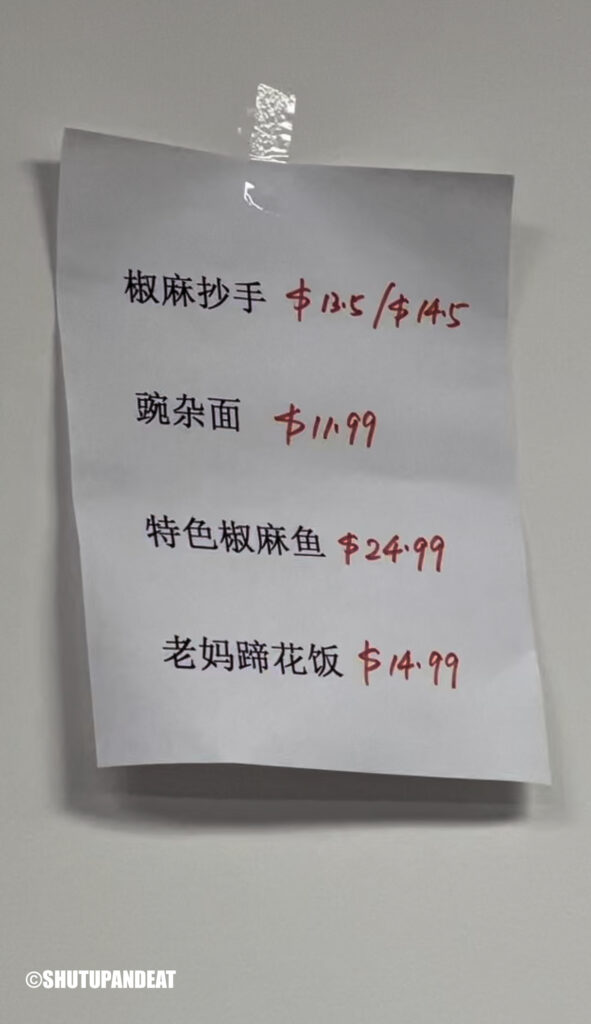 椒麻抄手 $13.5/$14.5
豌杂面 $11.99
特色椒麻鱼 $24.99
老妈蹄花饭 $14.99
©SHUTUPANDEAT